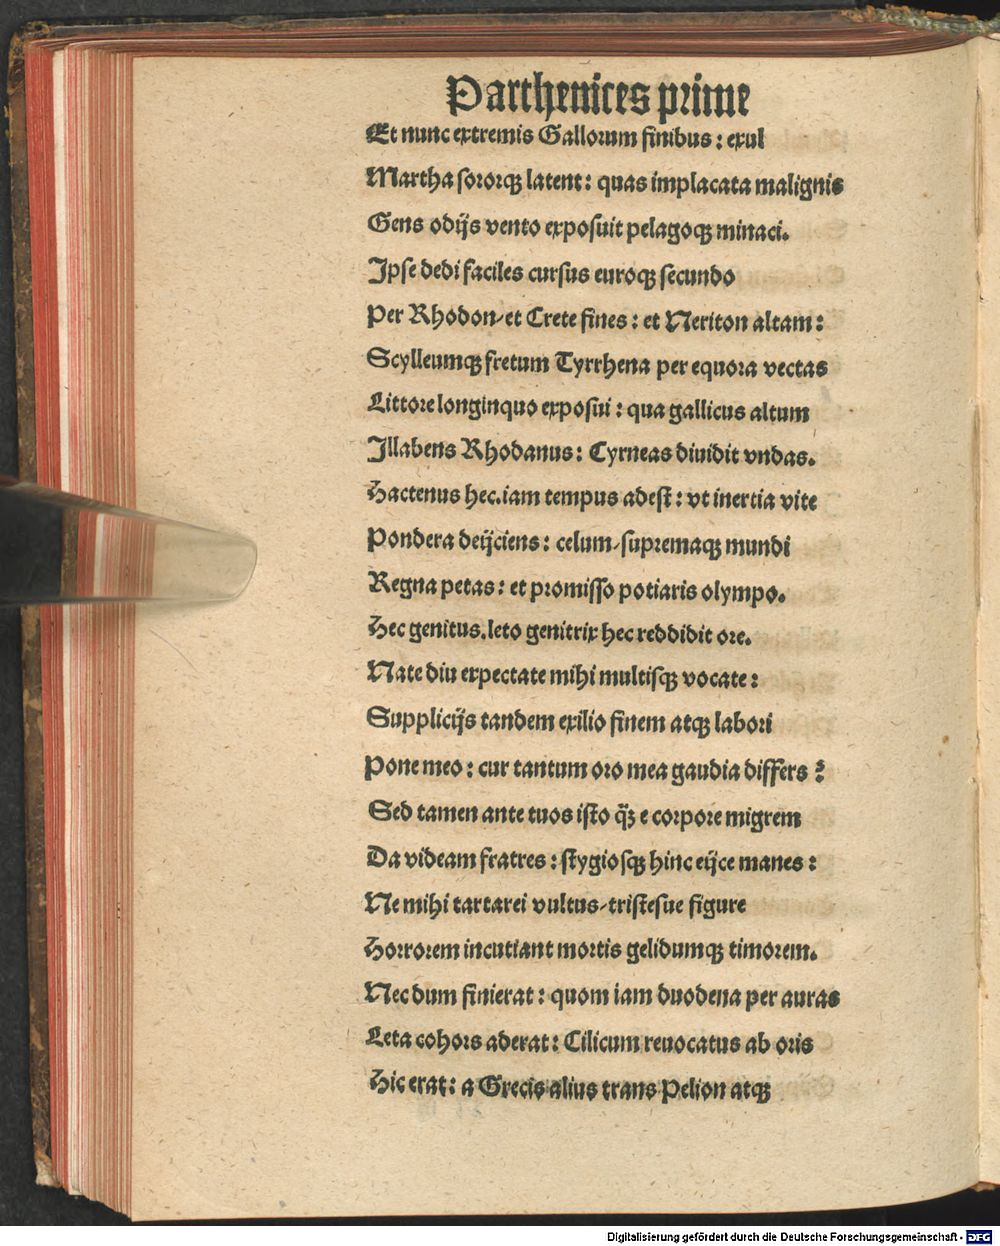 Parthenices prime
Et nunc extremis Gallorum finibus: exul
Martha sororqꝫ latent: quas implacata malignis
Gens odijs vento exposuit pelagoqꝫ minaci.
Ipse dedi faciles cursus euroqꝫ secundo
Per Rhodon/et Crete fines: et Neriton altam:
Scylleumqꝫ fretum Tyrrhena per equora vectas
Littore longinquo exposui: qua gallicus altum
Illabens Rhodanus: Cyrneas diuidit vndas.
Hactenus hec.iam tempus adest: vt inertia vite
Pondera deijciens: celum/supremaqꝫ mundi
Regna petas: et promisso potiaris olympo.
Hec genitus.leto genitrix hec reddidit ore.
Nate diu expectate mihi multisqꝫ vocate:
Supplicijs tandem exilio finem atqꝫ labori
Pone meo: cur tantum oro mea gaudia differs?
Sed tamen ante tuos isto q̄ꝫ e corpore migrem
Da videam fratres: stygiosqꝫ hinc eijce manes:
Ne mihi tartarei vultus/tristesue figure
Horrorem incutiant mortis gelidumqꝫ timorem.
Nec dum finierat: quom iam duodena per auras
Leta cohors aderat: Cilicum reuocatus ab oris
Hic erat: a Grecis alius trans Pelion atqꝫ
Digitalisierung gefördert durch die Deutsche Forschungsgemeinschaft - DFG